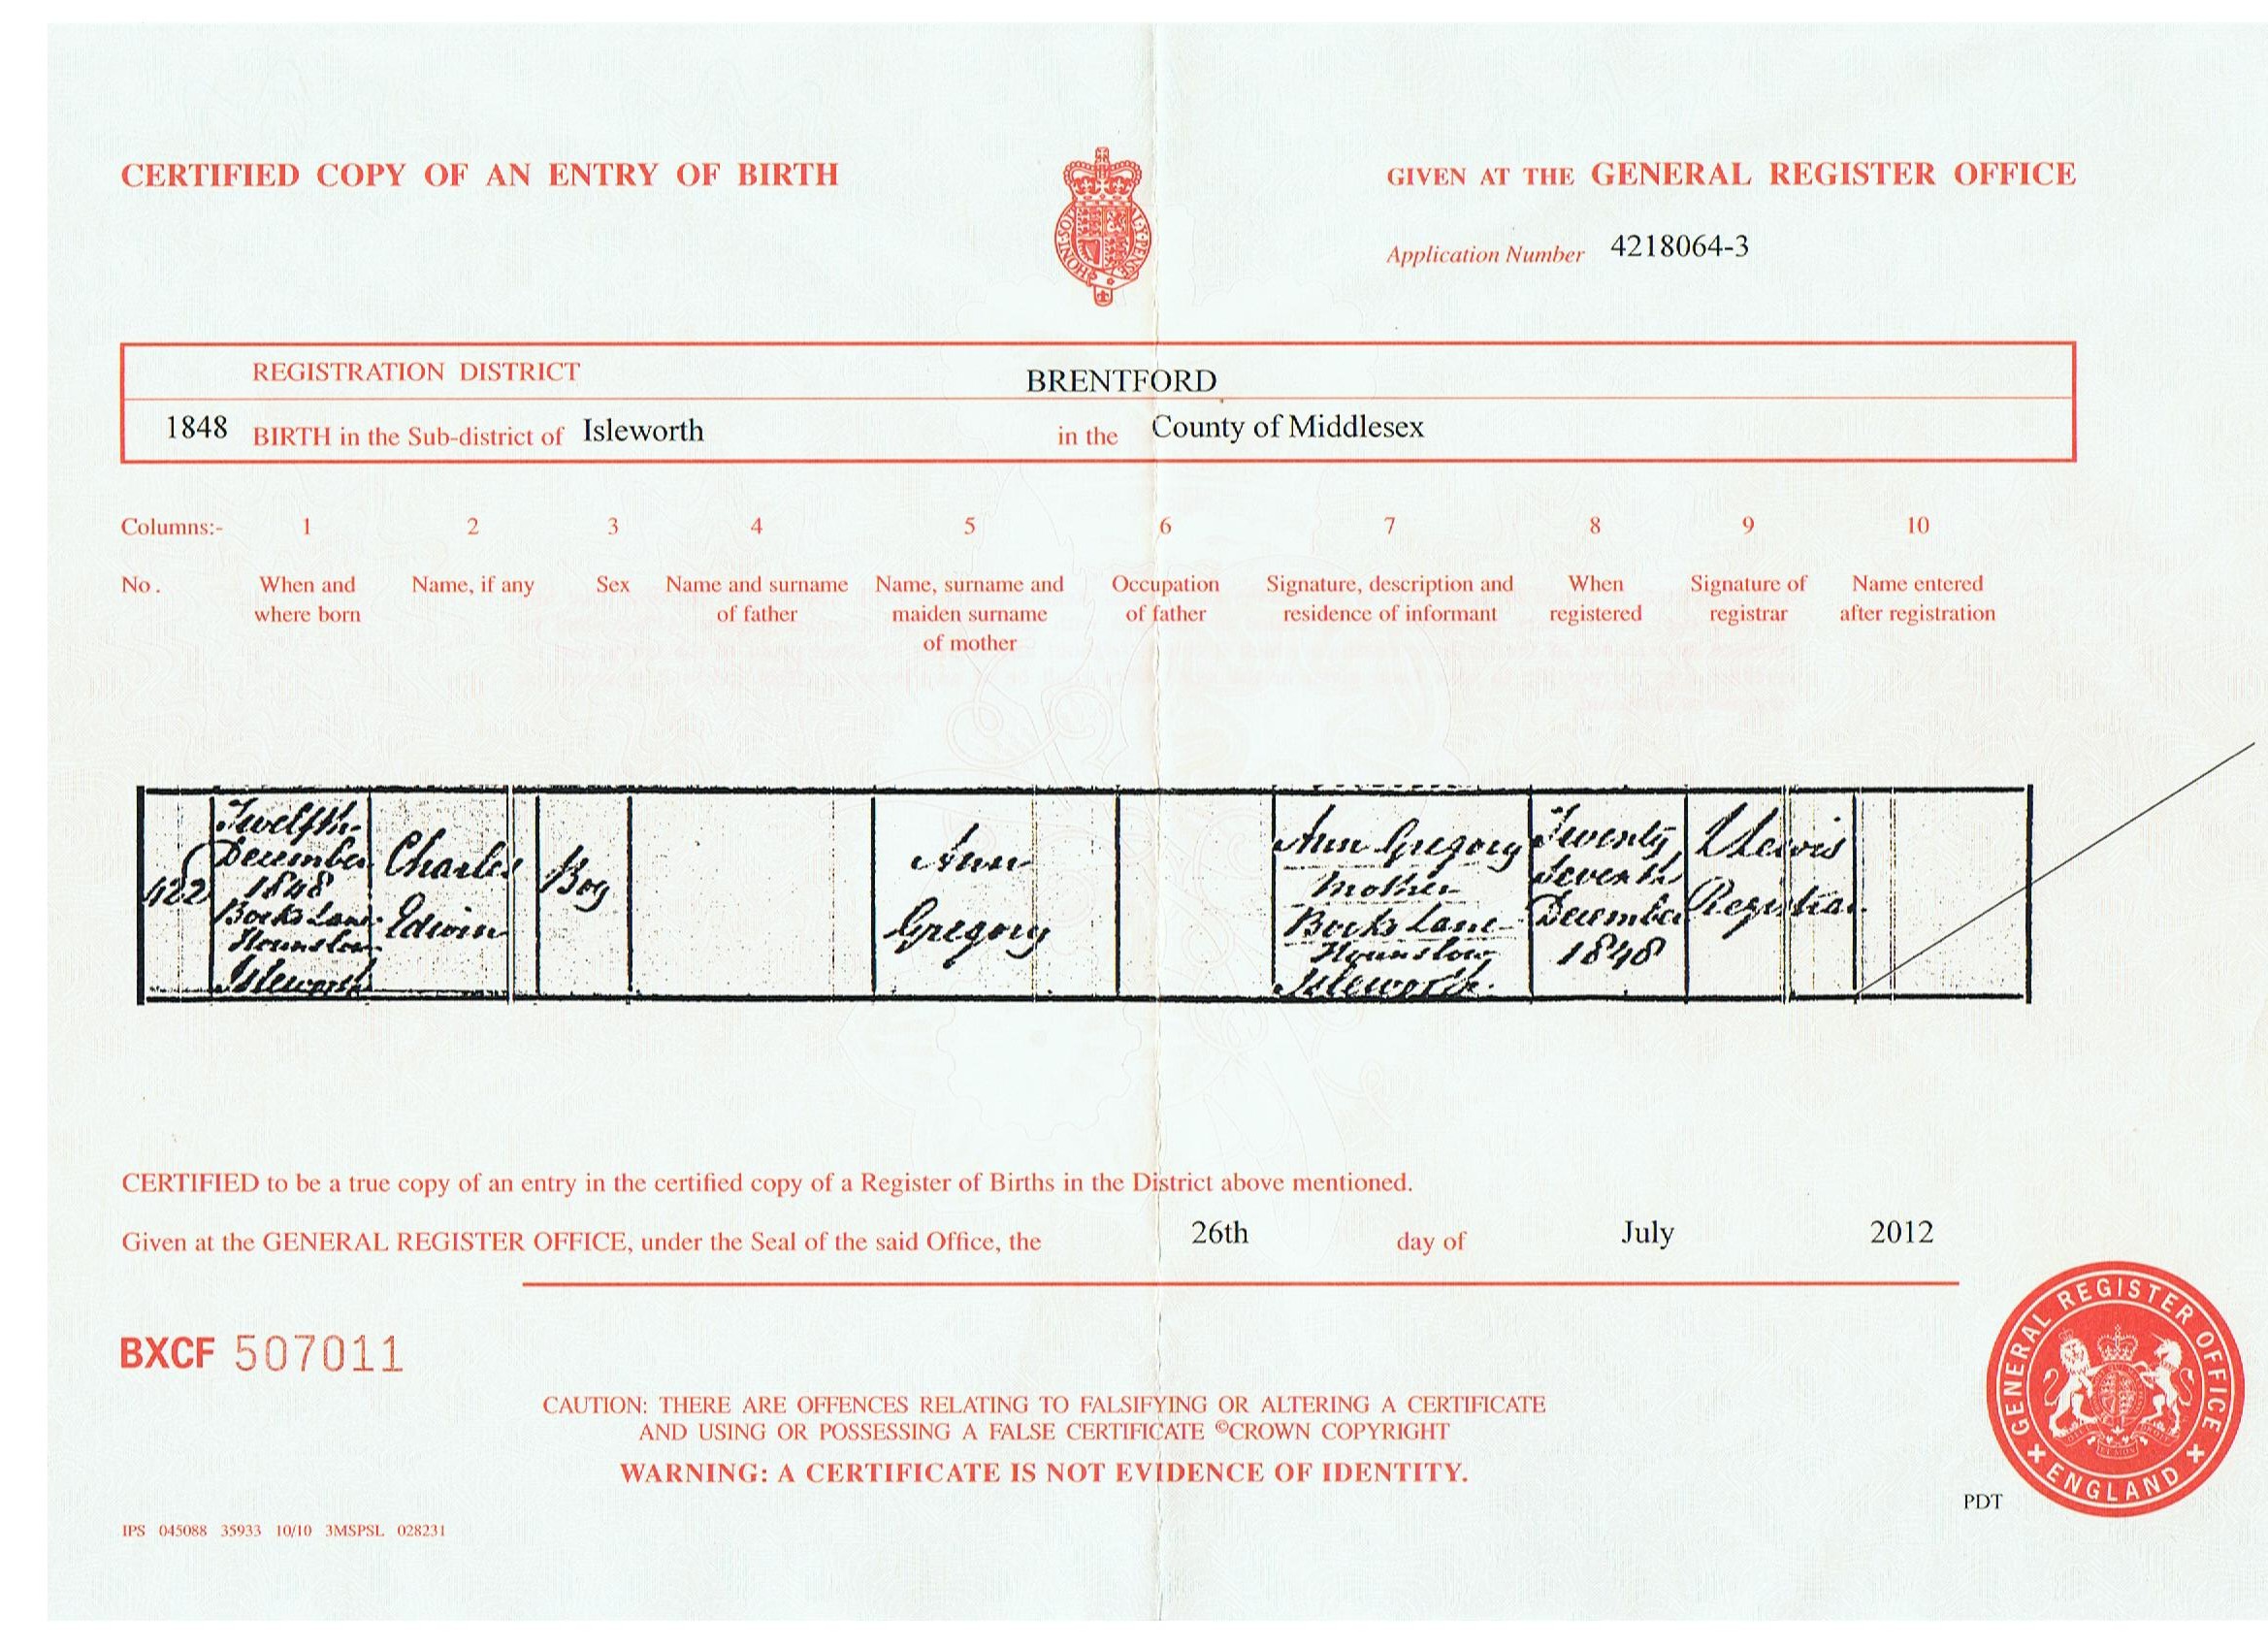 CERTIFIED COPY OF AN ENTRY OF BIRTH
GIVEN AT THE GENERAL REGISTER OFFICE
Application Number 4218064-3
REGISTRATION DISTRICT BRENTFORD
1848 BIRTH in the Sub-district of Isleworth in the County of Middlesex
Columns:- 1 2 3 4 5 6 7 8 9 10
No. When and Name, if any Sex Name and surname Name, surname and Occupation Signature, description and When Signature of Name entered
where born of father maiden surname of father residence of informant registered registrar after registration
of mother
422
Twelfth
December
1848
Lane
Hounslow
Isleworth
Charles
Edwin
Boy
Ann
Gregory
Ann Gregory
Mother
Lane
Hounslow
Isleworth
Twenty
Seventh
December
1848
Lewis
Registrar
CERTIFIED to be a true copy of an entry in the certified copy of a Register of Births in the District above mentioned.
Given at the GENERAL REGISTER OFFICE, under the Seal of the said Office, the 26th day of July 2012
BXCF 507011
CAUTION: THERE ARE OFFENCES RELATING TO FALSIFYING OR ALTERING A CERTIFICATE
AND USING OR POSSESSING A FALSE CERTIFICATE ©CROWN COPYRIGHT
WARNING: A CERTIFICATE IS NOT EVIDENCE OF IDENTITY.
GENERAL REGISTER OFFICE
ENGLAND
PDT
IPS 045088 35933 10/10 3MSPSL 028231